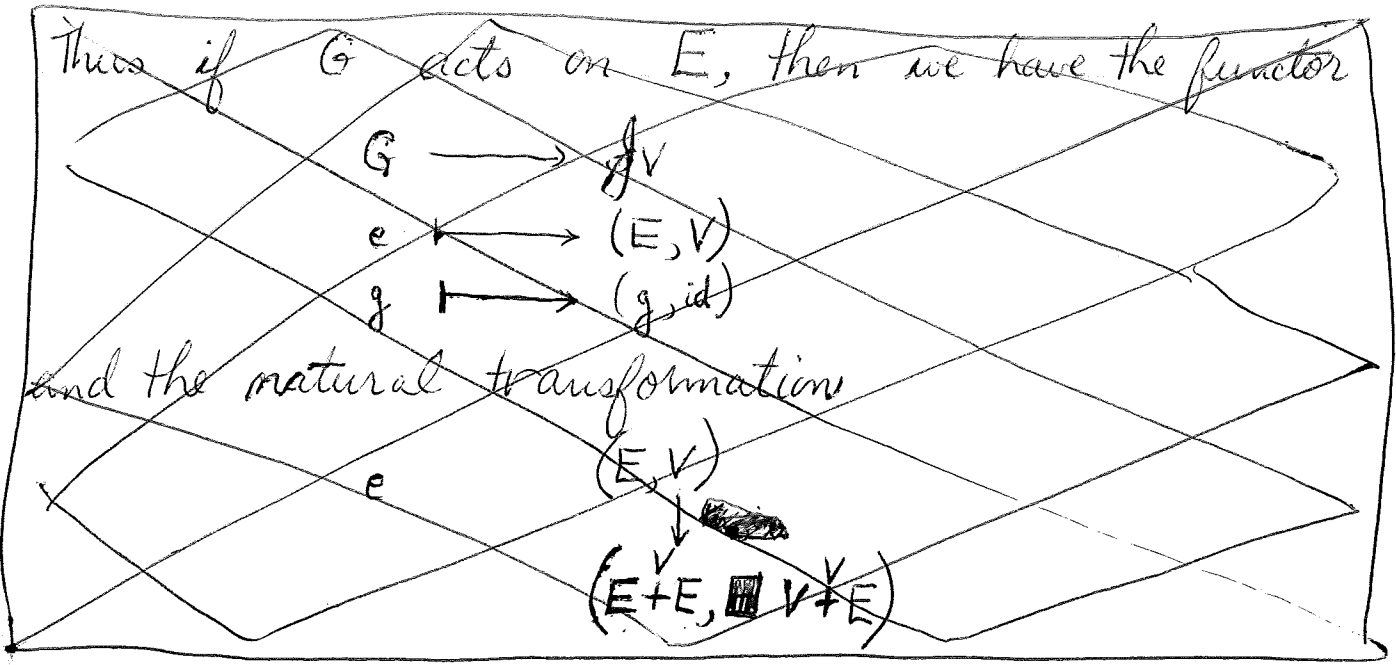 Thus if G acts on E, then we have the functor
G ⟶ 𝒥V
e ⟼ (E, V)
g ⟼ (g, id)
and the natural transformation
e (E, V)
↓
(E +^V E, V +^V E)